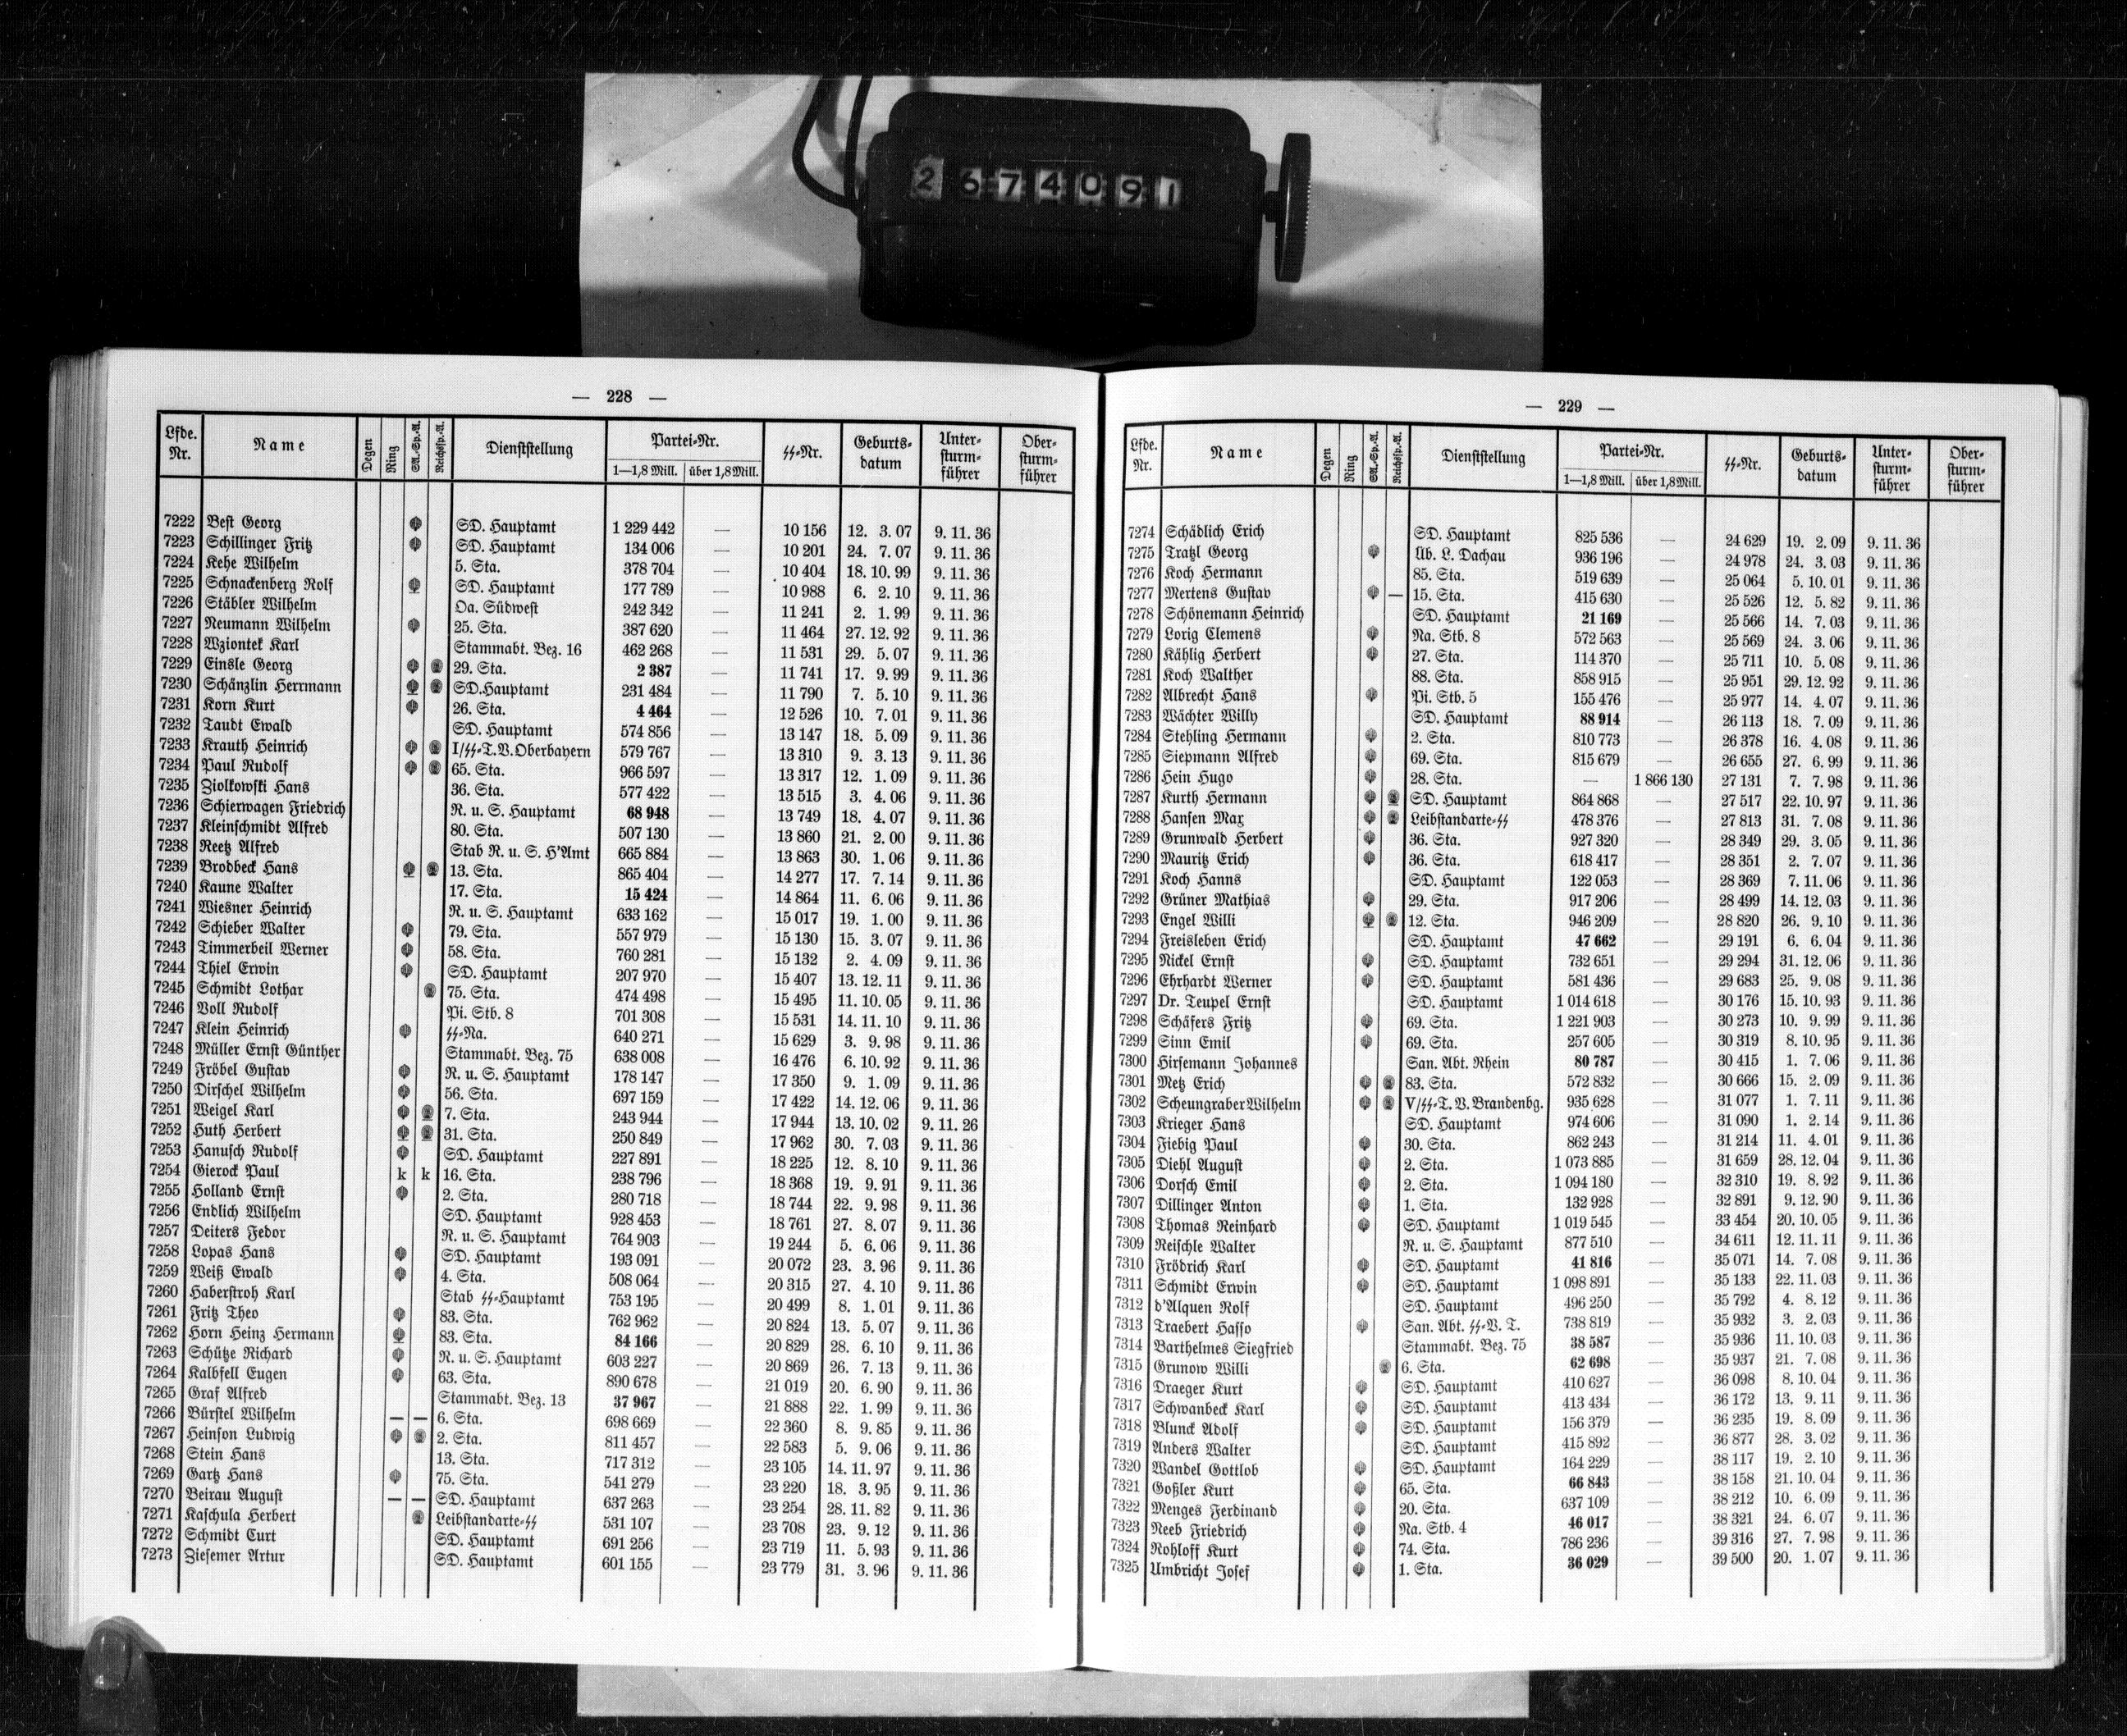 2674091
— 228 —
Lfde. Nr. Name Degen Ring SA.-Sp.-A. Reichssp.-A. Dienststellung Partei-Nr. 1—1,8 Mill. über 1,8 Mill. ᛋᛋ-Nr. Geburts-datum Unter-sturm-führer Ober-sturm-führer
7222 Best Georg SD. Hauptamt 1 229 442 — 10 156 12. 3. 07 9. 11. 36
7223 Schillinger Fritz SD. Hauptamt 134 006 — 10 201 24. 7. 07 9. 11. 36
7224 Kehe Wilhelm 5. Sta. 378 704 — 10 404 18. 10. 99 9. 11. 36
7225 Schnackenberg Rolf SD. Hauptamt 177 789 — 10 988 6. 2. 10 9. 11. 36
7226 Stäbler Wilhelm Oa. Südwest 242 342 — 11 241 2. 1. 99 9. 11. 36
7227 Neumann Wilhelm 25. Sta. 387 620 — 11 464 27. 12. 92 9. 11. 36
7228 Wziontek Karl Stammabt. Bez. 16 462 268 — 11 531 29. 5. 07 9. 11. 36
7229 Einsle Georg 29. Sta. 2 387 — 11 741 17. 9. 99 9. 11. 36
7230 Schänzlin Herrmann SD.Hauptamt 231 484 — 11 790 7. 5. 10 9. 11. 36
7231 Korn Kurt 26. Sta. 4 464 — 12 526 10. 7. 01 9. 11. 36
7232 Taudt Ewald SD. Hauptamt 574 856 — 13 147 18. 5. 09 9. 11. 36
7233 Krauth Heinrich I/ᛋᛋ-T.V.Oberbayern 579 767 — 13 310 9. 3. 13 9. 11. 36
7234 Paul Rudolf 65. Sta. 966 597 — 13 317 12. 1. 09 9. 11. 36
7235 Ziolkowski Hans 36. Sta. 577 422 — 13 515 3. 4. 06 9. 11. 36
7236 Schierwagen Friedrich R. u. S. Hauptamt 68 948 — 13 749 18. 4. 07 9. 11. 36
7237 Kleinschmidt Alfred 80. Sta. 507 130 — 13 860 21. 2. 00 9. 11. 36
7238 Reetz Alfred Stab R. u. S. H'Amt 665 884 — 13 863 30. 1. 06 9. 11. 36
7239 Brodbeck Hans 13. Sta. 865 404 — 14 277 17. 7. 14 9. 11. 36
7240 Kaune Walter 17. Sta. 15 424 — 14 864 11. 6. 06 9. 11. 36
7241 Wiesner Heinrich R. u. S. Hauptamt 633 162 — 15 017 19. 1. 00 9. 11. 36
7242 Schieber Walter 79. Sta. 557 979 — 15 130 15. 3. 07 9. 11. 36
7243 Timmerbeil Werner 58. Sta. 760 281 — 15 132 2. 4. 09 9. 11. 36
7244 Thiel Erwin SD. Hauptamt 207 970 — 15 407 13. 12. 11 9. 11. 36
7245 Schmidt Lothar 75. Sta. 474 498 — 15 495 11. 10. 05 9. 11. 36
7246 Voll Rudolf Pi. Stb. 8 701 308 — 15 531 14. 11. 10 9. 11. 36
7247 Klein Heinrich ᛋᛋ-Na. 640 271 — 15 629 3. 9. 98 9. 11. 36
7248 Müller Ernst Günther Stammabt. Bez. 75 638 008 — 16 476 6. 10. 92 9. 11. 36
7249 Fröbel Gustav R. u. S. Hauptamt 178 147 — 17 350 9. 1. 09 9. 11. 36
7250 Dirschel Wilhelm 56. Sta. 697 159 — 17 422 14. 12. 06 9. 11. 36
7251 Weigel Karl 7. Sta. 243 944 — 17 944 13. 10. 02 9. 11. 26
7252 Huth Herbert 31. Sta. 250 849 — 17 962 30. 7. 03 9. 11. 36
7253 Hanusch Rudolf SD. Hauptamt 227 891 — 18 225 12. 8. 10 9. 11. 36
7254 Gierock Paul k k 16. Sta. 238 796 — 18 368 19. 9. 91 9. 11. 36
7255 Holland Ernst 2. Sta. 280 718 — 18 744 22. 9. 98 9. 11. 36
7256 Endlich Wilhelm SD. Hauptamt 928 453 — 18 761 27. 8. 07 9. 11. 36
7257 Deiters Fedor R. u. S. Hauptamt 764 903 — 19 244 5. 6. 06 9. 11. 36
7258 Lopas Hans SD. Hauptamt 193 091 — 20 072 23. 3. 96 9. 11. 36
7259 Weiß Ewald 4. Sta. 508 064 — 20 315 27. 4. 10 9. 11. 36
7260 Haberstroh Karl Stab ᛋᛋ-Hauptamt 753 195 — 20 499 8. 1. 01 9. 11. 36
7261 Fritz Theo 83. Sta. 762 962 — 20 824 13. 5. 07 9. 11. 36
7262 Horn Heinz Hermann 83. Sta. 84 166 — 20 829 28. 6. 10 9. 11. 36
7263 Schütze Richard R. u. S. Hauptamt 603 227 — 20 869 26. 7. 13 9. 11. 36
7264 Kalbfell Eugen 63. Sta. 890 678 — 21 019 20. 6. 90 9. 11. 36
7265 Graf Alfred Stammabt. Bez. 13 37 967 — 21 888 22. 1. 99 9. 11. 36
7266 Bürstel Wilhelm — — 6. Sta. 698 669 — 22 360 8. 9. 85 9. 11. 36
7267 Heinson Ludwig 2. Sta. 811 457 — 22 583 5. 9. 06 9. 11. 36
7268 Stein Hans 13. Sta. 717 312 — 23 105 14. 11. 97 9. 11. 36
7269 Gartz Hans 75. Sta. 541 279 — 23 220 18. 3. 95 9. 11. 36
7270 Beirau August — — SD. Hauptamt 637 263 — 23 254 28. 11. 82 9. 11. 36
7271 Kaschula Herbert Leibstandarte-ᛋᛋ 531 107 — 23 708 23. 9. 12 9. 11. 36
7272 Schmidt Curt SD. Hauptamt 691 256 — 23 719 11. 5. 93 9. 11. 36
7273 Ziesemer Artur SD. Hauptamt 601 155 — 23 779 31. 3. 96 9. 11. 36
— 229 —
Lfde. Nr. Name Degen Ring SA.-Sp.-A. Reichssp.-A. Dienststellung Partei-Nr. 1—1,8 Mill. über 1,8 Mill. ᛋᛋ-Nr. Geburts-datum Unter-sturm-führer Ober-sturm-führer
7274 Schädlich Erich SD. Hauptamt 825 536 — 24 629 19. 2. 09 9. 11. 36
7275 Tratzl Georg Üb. L. Dachau 936 196 — 24 978 24. 3. 03 9. 11. 36
7276 Koch Hermann 85. Sta. 519 639 — 25 064 5. 10. 01 9. 11. 36
7277 Mertens Gustav — 15. Sta. 415 630 — 25 526 12. 5. 82 9. 11. 36
7278 Schönemann Heinrich SD. Hauptamt 21 169 — 25 566 14. 7. 03 9. 11. 36
7279 Lorig Clemens Na. Stb. 8 572 563 — 25 569 24. 3. 06 9. 11. 36
7280 Kählig Herbert 27. Sta. 114 370 — 25 711 10. 5. 08 9. 11. 36
7281 Koch Walther 88. Sta. 858 915 — 25 951 29. 12. 92 9. 11. 36
7282 Albrecht Hans Pi. Stb. 5 155 476 — 25 977 14. 4. 07 9. 11. 36
7283 Wächter Willy SD. Hauptamt 88 914 — 26 113 18. 7. 09 9. 11. 36
7284 Stehling Hermann 2. Sta. 810 773 — 26 378 16. 4. 08 9. 11. 36
7285 Siepmann Alfred 69. Sta. 815 679 — 26 655 27. 6. 99 9. 11. 36
7286 Hein Hugo 28. Sta. — 1 866 130 27 131 7. 7. 98 9. 11. 36
7287 Kurth Hermann SD. Hauptamt 864 868 — 27 517 22. 10. 97 9. 11. 36
7288 Hansen Max Leibstandarte-ᛋᛋ 478 376 — 27 813 31. 7. 08 9. 11. 36
7289 Grunwald Herbert 36. Sta. 927 320 — 28 349 29. 3. 05 9. 11. 36
7290 Mauritz Erich 36. Sta. 618 417 — 28 351 2. 7. 07 9. 11. 36
7291 Koch Hanns SD. Hauptamt 122 053 — 28 369 7. 11. 06 9. 11. 36
7292 Grüner Mathias 29. Sta. 917 206 — 28 499 14. 12. 03 9. 11. 36
7293 Engel Willi 12. Sta. 946 209 — 28 820 26. 9. 10 9. 11. 36
7294 Freisleben Erich SD. Hauptamt 47 662 — 29 191 6. 6. 04 9. 11. 36
7295 Nickel Ernst SD. Hauptamt 732 651 — 29 294 31. 12. 06 9. 11. 36
7296 Ehrhardt Werner SD. Hauptamt 581 436 — 29 683 25. 9. 08 9. 11. 36
7297 Dr. Teupel Ernst SD. Hauptamt 1 014 618 — 30 176 15. 10. 93 9. 11. 36
7298 Schäfers Fritz 69. Sta. 1 221 903 — 30 273 10. 9. 99 9. 11. 36
7299 Sinn Emil 69. Sta. 257 605 — 30 319 8. 10. 95 9. 11. 36
7300 Hirsemann Johannes San. Abt. Rhein 80 787 — 30 415 1. 7. 06 9. 11. 36
7301 Metz Erich 83. Sta. 572 832 — 30 666 15. 2. 09 9. 11. 36
7302 Scheungraber Wilhelm V/ᛋᛋ-T. V. Brandenbg. 935 628 — 31 077 1. 7. 11 9. 11. 36
7303 Krieger Hans SD. Hauptamt 974 606 — 31 090 1. 2. 14 9. 11. 36
7304 Fiebig Paul 30. Sta. 862 243 — 31 214 11. 4. 01 9. 11. 36
7305 Diehl August 2. Sta. 1 073 885 — 31 659 28. 12. 04 9. 11. 36
7306 Dorsch Emil 2. Sta. 1 094 180 — 32 310 19. 8. 92 9. 11. 36
7307 Dillinger Anton 1. Sta. 132 928 — 32 891 9. 12. 90 9. 11. 36
7308 Thomas Reinhard SD. Hauptamt 1 019 545 — 33 454 20. 10. 05 9. 11. 36
7309 Reischle Walter R. u. S. Hauptamt 877 510 — 34 611 12. 11. 11 9. 11. 36
7310 Frödrich Karl SD. Hauptamt 41 816 — 35 071 14. 7. 08 9. 11. 36
7311 Schmidt Erwin SD. Hauptamt 1 098 891 — 35 133 22. 11. 03 9. 11. 36
7312 d'Alquen Rolf SD. Hauptamt 496 250 — 35 792 4. 8. 12 9. 11. 36
7313 Traebert Hasso San. Abt. ᛋᛋ-V. T. 738 819 — 35 932 3. 2. 03 9. 11. 36
7314 Barthelmes Siegfried Stammabt. Bez. 75 38 587 — 35 936 11. 10. 03 9. 11. 36
7315 Grunow Willi 6. Sta. 62 698 — 35 937 21. 7. 08 9. 11. 36
7316 Draeger Kurt SD. Hauptamt 410 627 — 36 098 8. 10. 04 9. 11. 36
7317 Schwanbeck Karl SD. Hauptamt 413 434 — 36 172 13. 9. 11 9. 11. 36
7318 Blunck Adolf SD. Hauptamt 156 379 — 36 235 19. 8. 09 9. 11. 36
7319 Anders Walter SD. Hauptamt 415 892 — 36 877 28. 3. 02 9. 11. 36
7320 Wandel Gottlob SD. Hauptamt 164 229 — 38 117 19. 2. 10 9. 11. 36
7321 Goßler Kurt 65. Sta. 66 843 — 38 158 21. 10. 04 9. 11. 36
7322 Menges Ferdinand 20. Sta. 637 109 — 38 212 10. 6. 09 9. 11. 36
7323 Neeb Friedrich Na. Stb. 4 46 017 — 38 321 24. 6. 07 9. 11. 36
7324 Rohloff Kurt 74. Sta. 786 236 — 39 316 27. 7. 98 9. 11. 36
7325 Umbricht Josef 1. Sta. 36 029 — 39 500 20. 1. 07 9. 11. 36